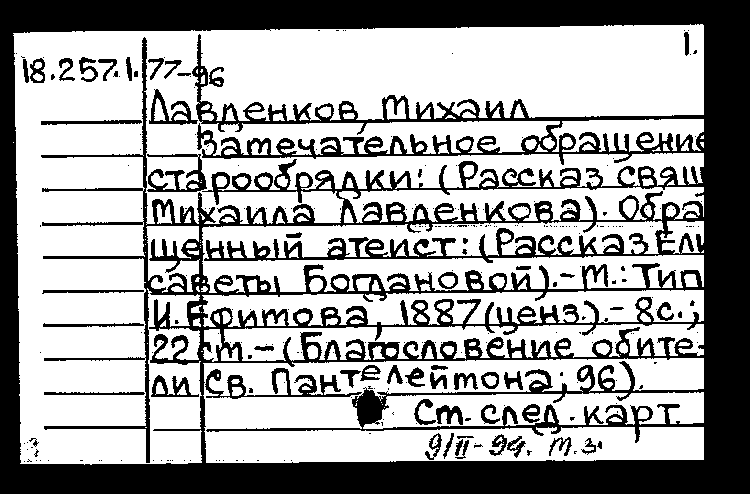 1.
18.257.1.77-96
Лавденков, Михаил
Замечательное обращение
старообрядки: (Рассказ свящ
Михаила Лавденкова). Обра
щенный атеист: (Рассказ Ели
саветы Богдановой).-М.: Тип
И. Ефимова, 1887(ценз.).- 8с.;
22 см.- (Благословение обите-
ли св. Пантелеймона; 96).
См. след. карт.
9/II-94. М.З.